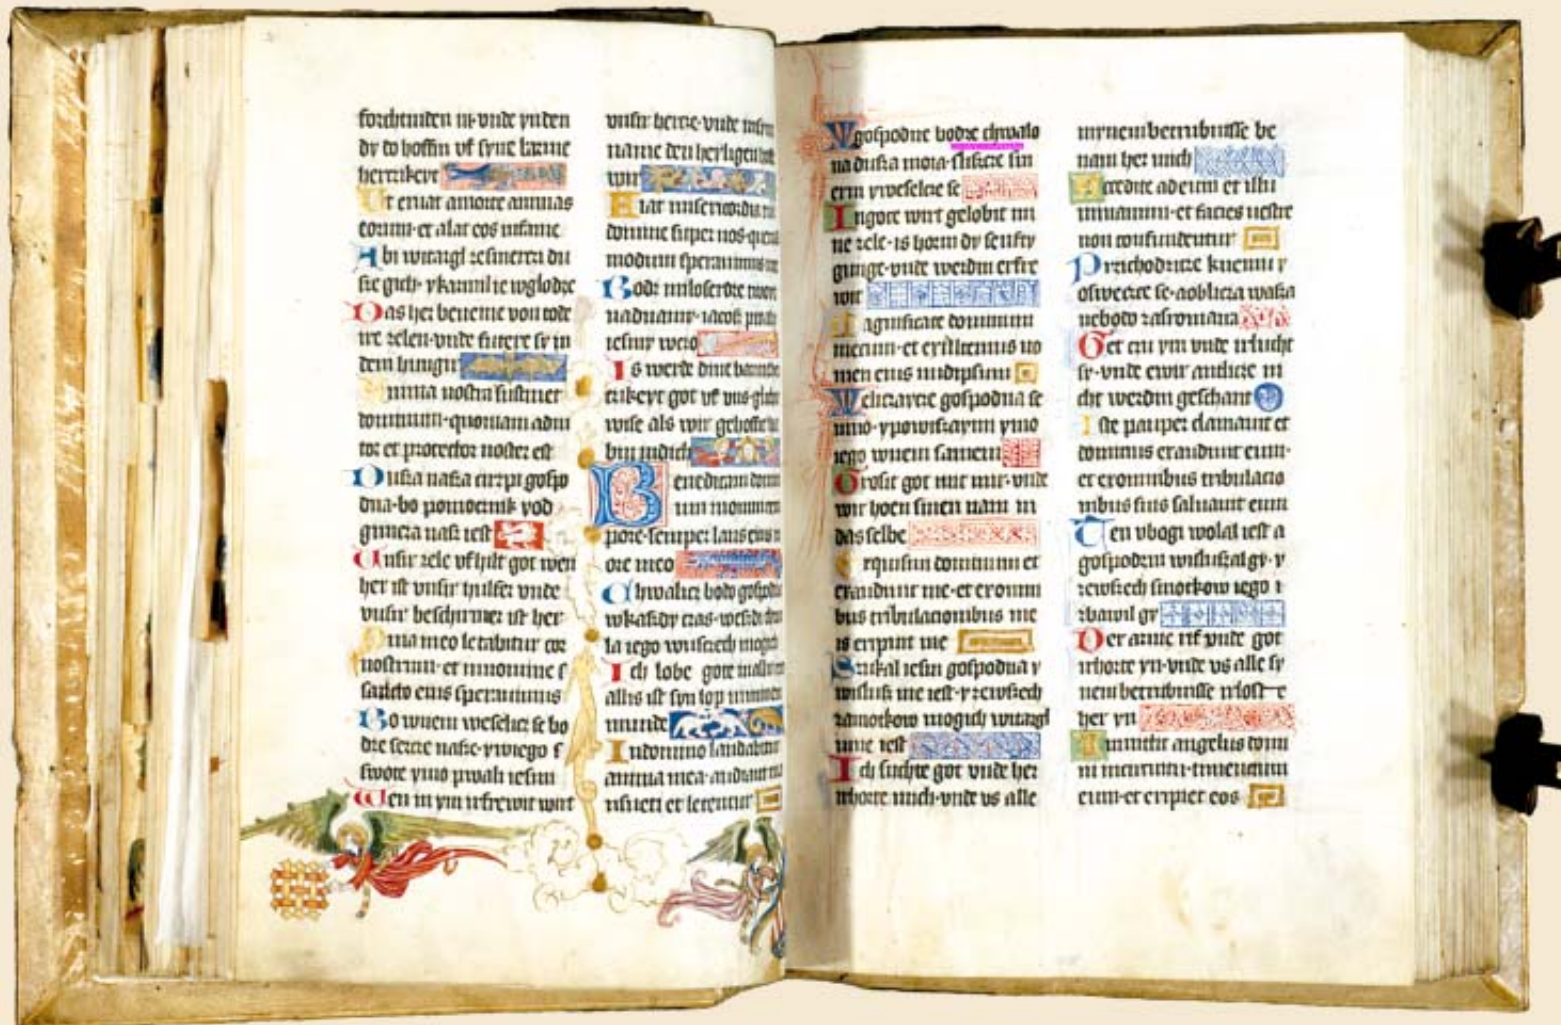 forchtinden in vnde ynden
dy do hoffin vf syne barm
herczikeyt
Ut eruat a morte animas
eorum et alat eos in fame
Abi witargl z smerci du
sze gich y karmil ie w glodze
Das her beneme von tode
ire zelen vnde fuere sy in
dem hungir
Anima nostra sustinet
dominum quoniam adiu
tor et protector noster est
Dusza nasza cirzpi gospo
dna bo pomocnik y od
gimcza nasz iest
Unsir zele vfhilt got wen
her ist vnsir hulfer vnde
vnsir beschirmer ist her
Quia in eo letabitur cor
nostrum et in nomine s
sancto eius sperauimus
Bo w niem weselicz se bo
dze sercze nasze y w iego s
swote ymo pwali iesmi
Wen in ym irfrewit wirt
vnsir hercze vnde
name den heyligen
wir
Fiat misericordia
domine super nos
modum sperauimus
Bodz miloserdze
nad nami iacosz
iesmy w cio
Is werde dine barmh
czikeyt got vf vns
wise als wir
bin in dich
Benedicam
num in omni
pore semper laus eius
ore meo
Chwalicz bodo
w kaszdy czas
la iego w usczech
Ich lobe gote
allis ist syn lop
munde
In domino laudabitur
anima mea audiant
nsueti et letentur
W gospodnie bodze chwalo
na dusza moia slischcze
In gote wirt gelobit mi
ne zele is horin dy senfty
ginge vnde werdin erfre
wit
Magnificate dominum
mecum et exaltemus no
men eius in idipsum
Welczaycie gospodna se
mno y powiszaymy ymo
iego w niem samem
Grosit got mit mir vnde
wir hoen sinen nam in
das selbe
Exquisiui dominum et
exaudiuit me et ex omni
bus tribulacionibus me
is eripuit me
Szukal iesm gospodna y
wisluszal me iest y ze wszech
zamotkow mogich witargl
mie iest
Ich suchte got vnde her
irhorte mich vnde vs alle
mynem betrubnisse be
nam her mich
Accedite ad eum et illu
minamini et facies uestre
non confundentur
Przichodzicze k niemu y
oswecce se a oblicza wasza
ne bodo zasromana
Get czu ym vnde irlucht
sy vnde ewir anlicze ni
cht werdin geschant
Iste pauper clamauit et
dominus exaudiuit eum
et ex omnibus tribulacio
nibus suis saluauit eum
Ten vbogi wolal iest a
gospodzin wisluszal gy y
ze wszech smotkow iego i
zbawil gy
Der arme rif vnde got
irhorte yn vnde vs alle sy
nem betrubnisse irlost e
her yn
Inmittit angelus domi
ni in circuitu timencium
eum et eripiet eos